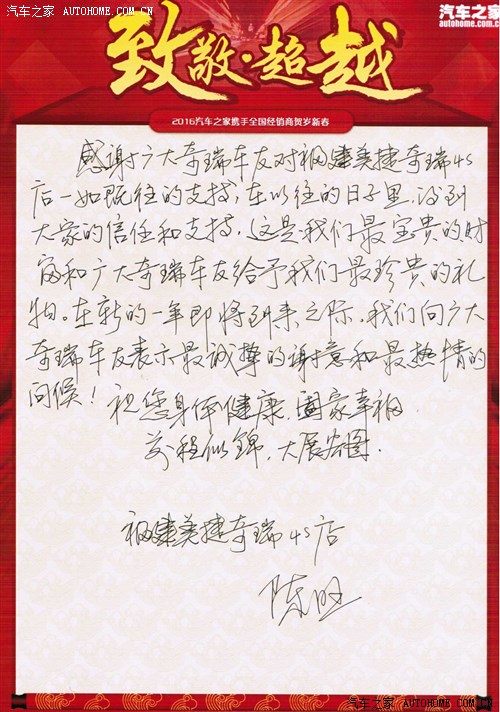 汽车之家 AUTOHOME.COM.CN
汽车之家
AUTOHOME.COM.CN
致敬·超越
2016汽车之家携手全国经销商贺岁新春
感谢广大奇瑞车友对福建美捷奇瑞4S
店一如既往的支持,在以往的日子里,得到
大家的信任和支持,这是我们最宝贵的财
富和广大奇瑞车友给予我们最珍贵的礼
物。在新的一年即将到来之际,我们向广大
奇瑞车友表示最诚挚的谢意和最热情的
问候!祝您身体健康,阖家幸福
前程似锦,大展宏图.
福建美捷奇瑞4S店
陈旺
汽车之家 AUTOHOME.COM.CN